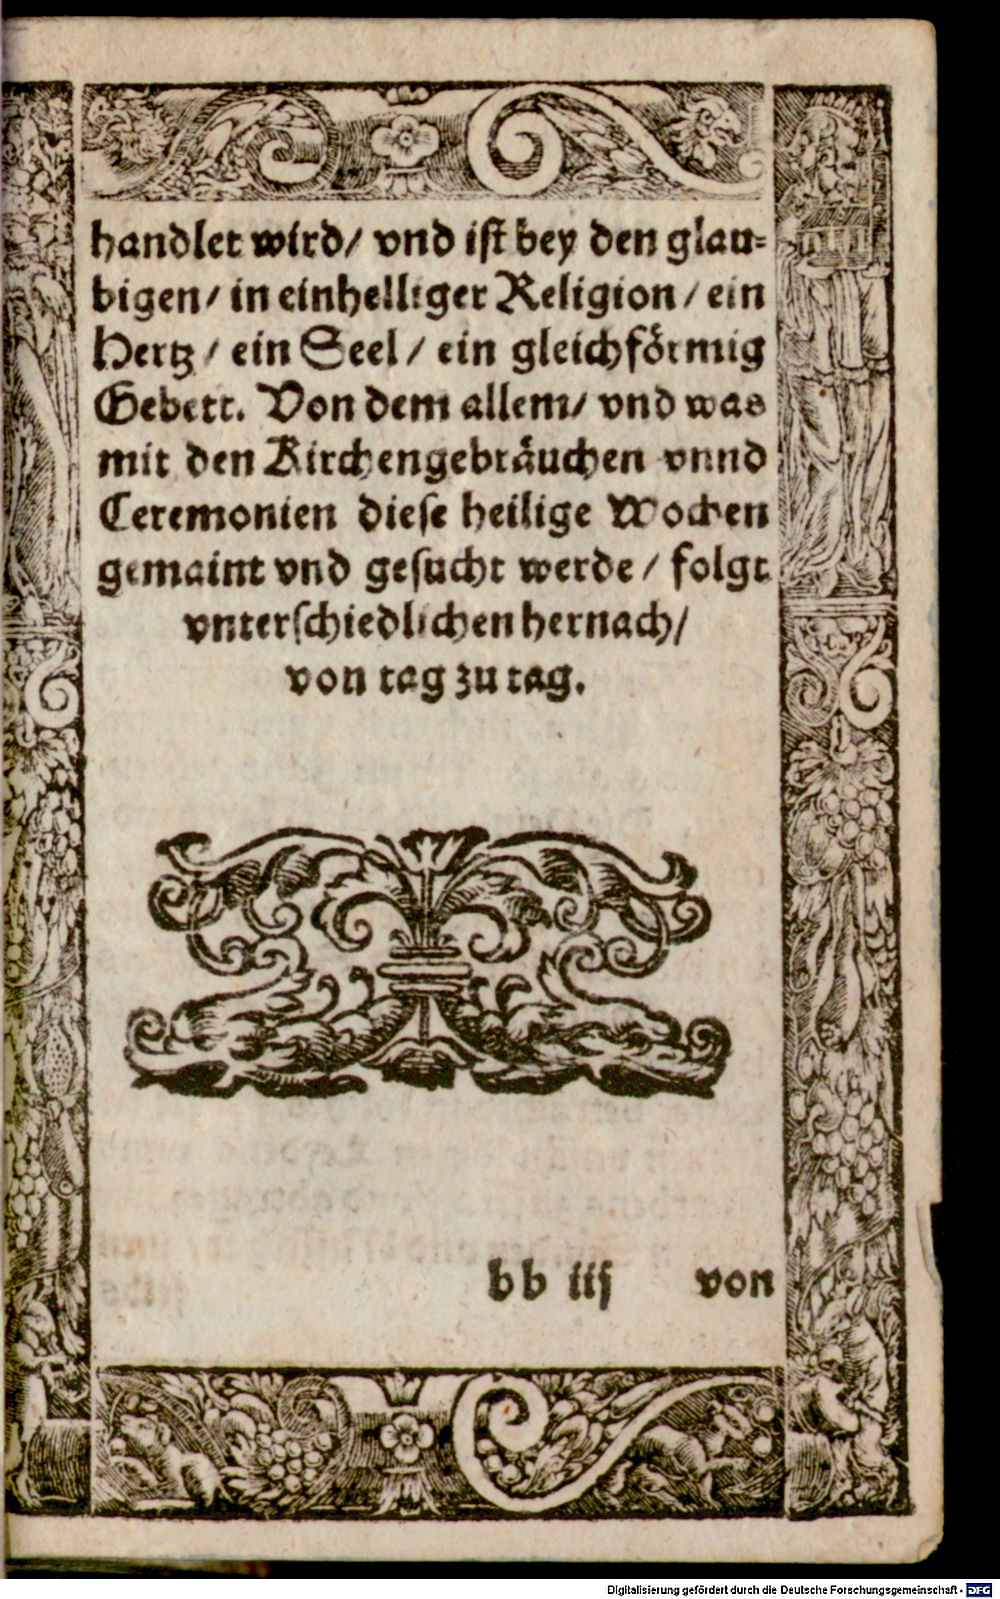 handlet wird/ vnd ist bey den glau=
bigen/ in einhelliger Religion/ ein
Hertz/ ein Seel/ ein gleichförmig
Gebett. Von dem allem/ vnd was
mit den Kirchengebräuchen vnnd
Ceremonien diese heilige Wochen
gemaint vnd gesucht werde/ folgt
vnterschiedlichen hernach/
von tag zu tag.
bb iij von
Digitalisierung gefördert durch die Deutsche Forschungsgemeinschaft - DFG